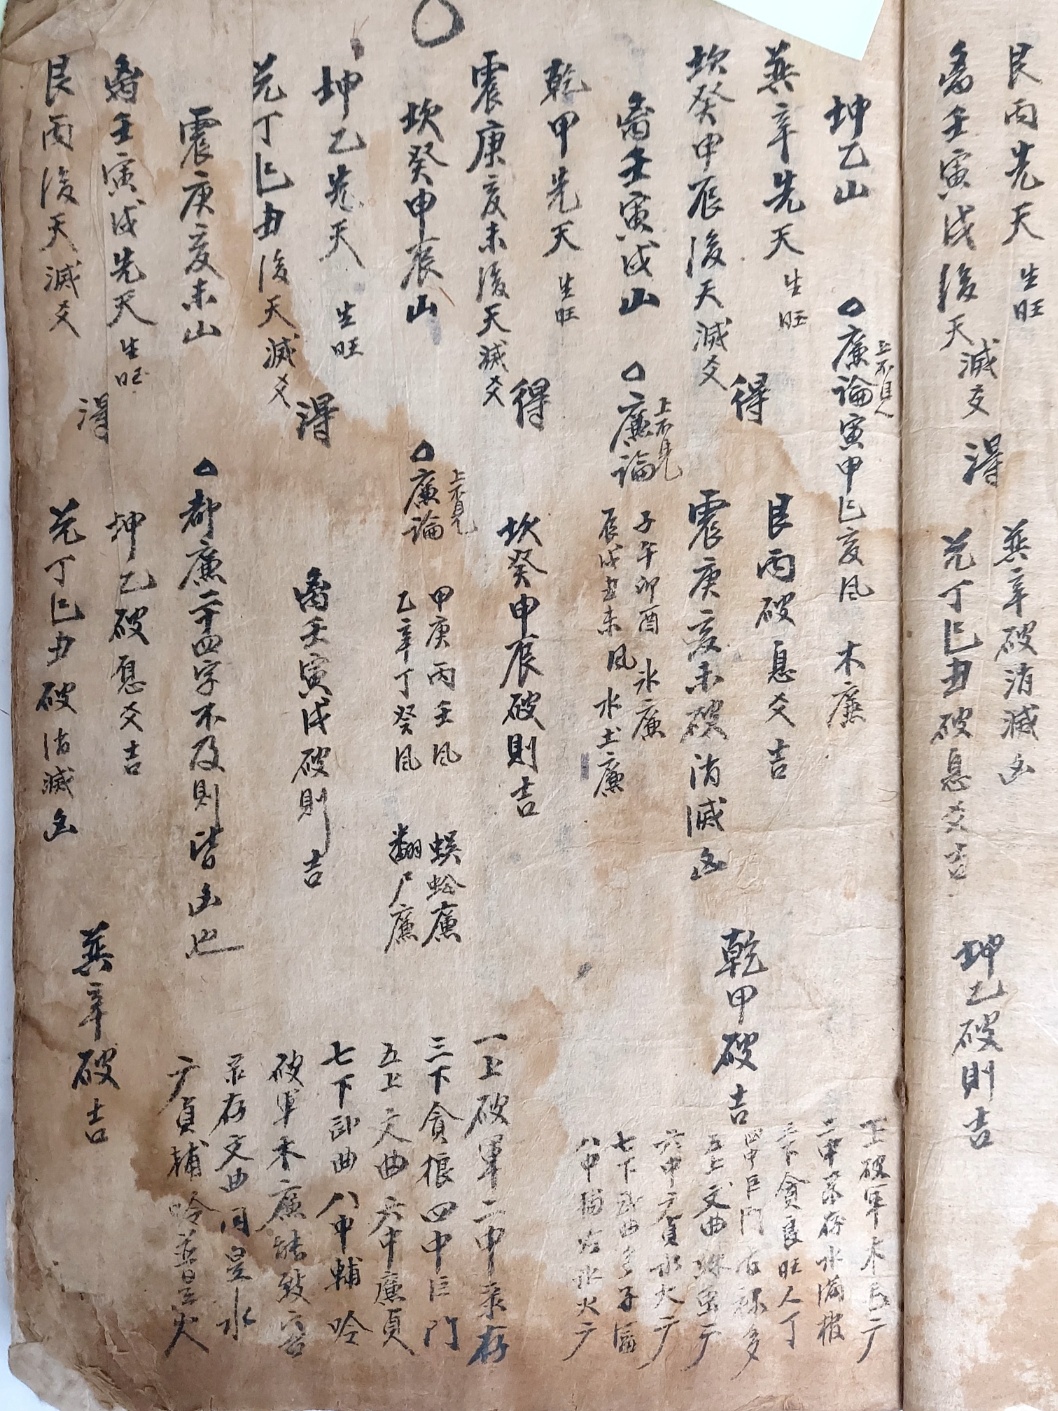 艮丙先天 生旺
離壬寅戌後天滅爻
得
巽辛破消滅凶
兌丁巳丑破息爻吉
坤乙破則吉
坤乙山
巽辛先天 生旺
坎癸申辰後天滅爻
得
艮丙破息爻吉
震庚亥未破消滅凶
乾甲破吉
廉論寅申巳亥風 木廉
離壬寅戌山
乾甲先天 生旺
震庚亥未後天滅爻
得
坎癸申辰破則吉
廉論
子午卯酉 水廉
辰戌丑未風 水土廉
坎癸申辰山
坤乙先天 生旺
兌丁巳丑後天滅爻
得
離壬寅戌破則吉
廉論
甲庚丙壬風 蜈蚣廉
乙辛丁癸風 翻尸廉
震庚亥未山
離壬寅戌先天 生旺
艮丙後天滅爻
得
坤乙破息爻吉
兌丁巳丑破消滅凶
巽辛破吉
都廉二十四字不及則皆凶也
二中彔存水滿棺
三下貪良旺人丁
四中巨門
五上文曲
六中
七下武曲多子
八中輔
一上破軍二中彔存
三下貪狼四中巨門
五上文曲六中廉貞
七下武曲八中輔吟
破軍木廉
彔存文曲同是水
貞輔吟